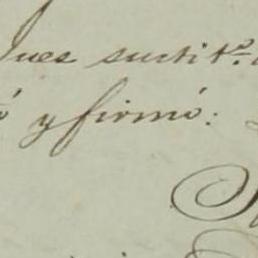 Jues sustit.º
ó y firmó: